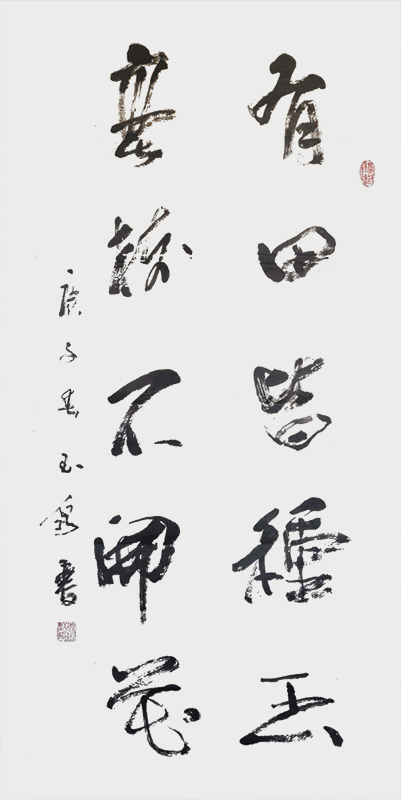 有田皆種玉
無樹不開花
庚子春玉書